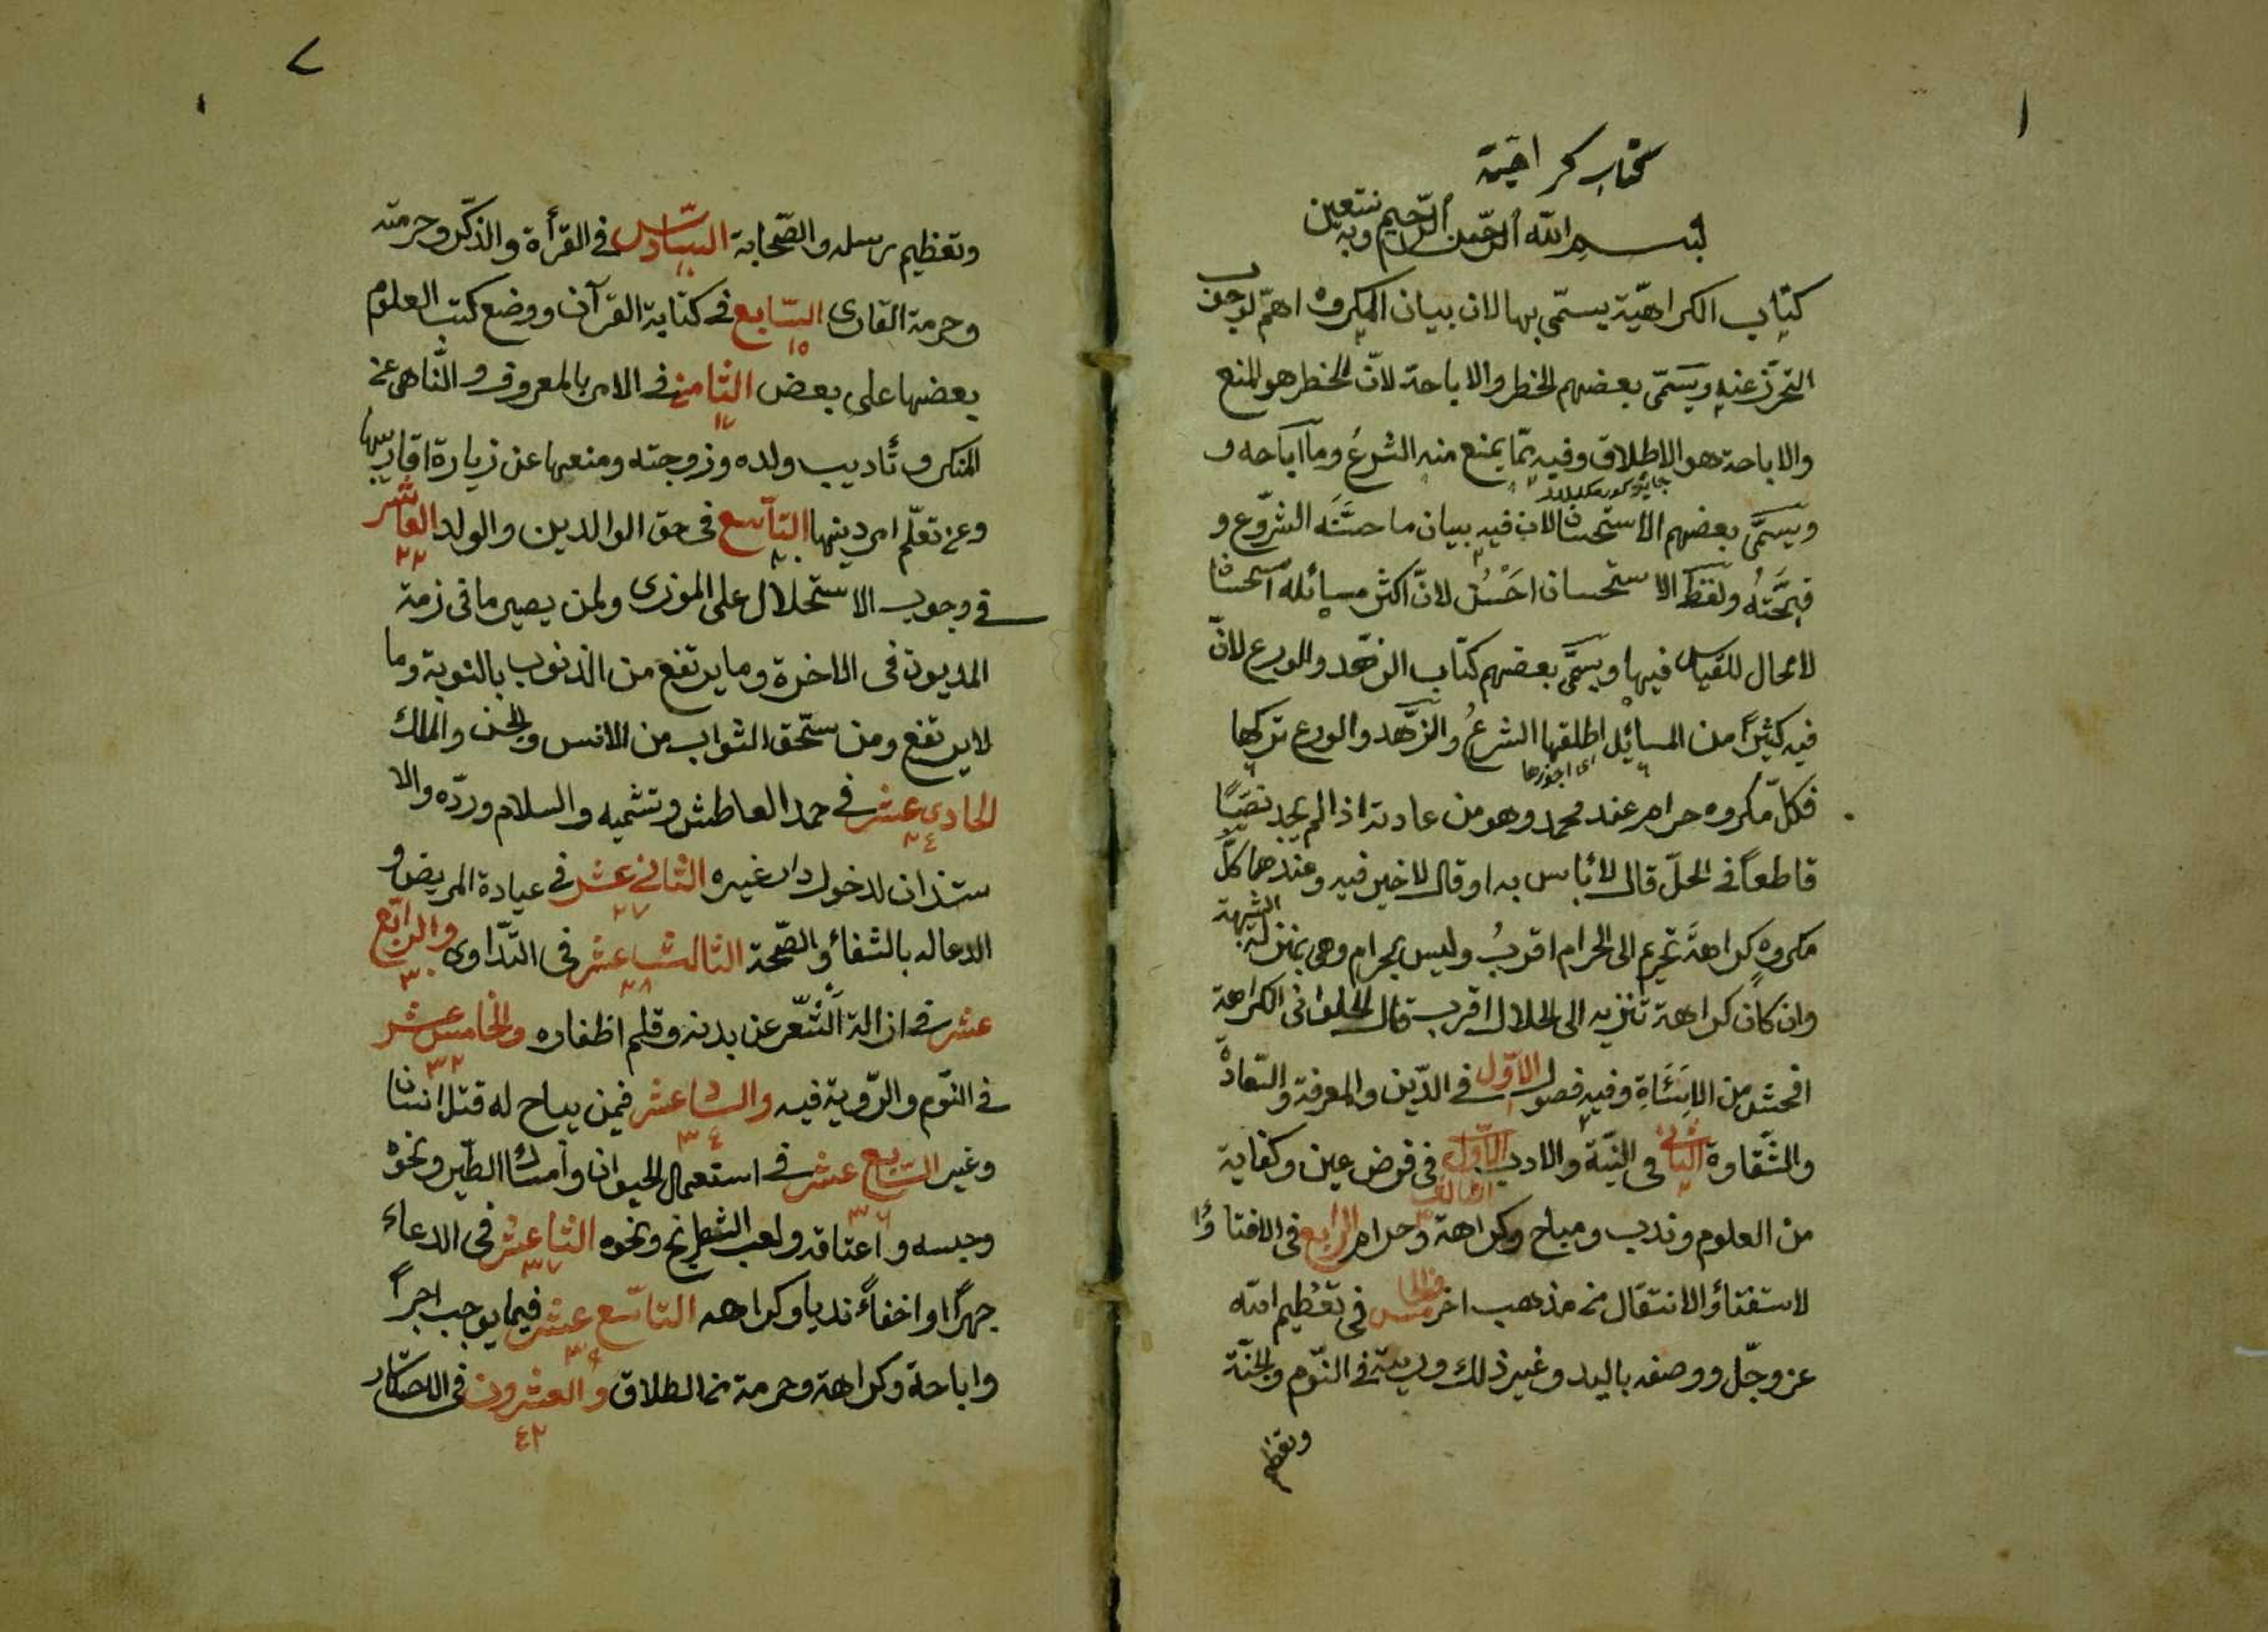 ١
كتاب كراهية
بسم الله الرحمن الرحيم وبه نتعين
كتاب الكراهيّة يسمّى بها لان بيان المكروه اهمّ لوجوب
التحرّز عنه ويسمّى بعضهم الخطر والاباحة لانّ الخطر هو المنع
والاباحة هو الاطلاق وفيه ممّا يمنع منه الشرعُ وما اباحه و
ويسمَّى بعضهم الاستحسان لان فيه بيان ما حسَّنَه الشرع و
قبَّحَتهُ ولفظ الاستحسان احْسنُ لانّ اكثر مسائله استحسانا
لا مجال للقياس فيها ويسمّى بعضهم كتاب الزهد والورع لانّ
فيه كثيرًا من المسائل اطلقها الشرعُ والزّهد والورع تركها
اى اجوزها
فكلّ مكروه حرام عند محمد وهو من عادته اذا لم يجد نصّيًا
قاطعًا فى الحلّ قال لا بأس به او قال لا خير فيه وعندهما كلّ
مكروهٍ كراهةَ تحريم الى الحرام اقربُ وليس بحرام وهى بمنزلة الشبهة
وان كان كراهة تنزيه الى الحلال اقرب قال الحلوانى الكراهة
افحش من الاسَاءَةِ وفيه فصول الاوّل فى الدّين والمعرفة والسّعادة
والشَّقاوة الثانى فى النيّة والادب الاوّل فى فرض عين وكفاية
الثالث
من العلوم وندب ومباح وكراهة وحرام الرابع فى الافتاء وا
لاستفتاء والانتقال من مذهب اخر الخامس فى تعظيم الله
عز وجلّ ووصفه باليد وغير ذلك ورؤيته فى النّوم والجنّة
وتعظيم
٢
وتعظيم رسله والصّحابة السّادس فى القرأة والذكر وحرمته
وحرمة القارى السّابع فى كتابة القرآن ووضع كتب العلوم
١٥
بعضها على بعض الثّامن فى الامر بالمعروف والنّاهى عن
١٧
المنكر وتأديب ولده وزوجته ومنعها عن زيارة اقاربها
وعن تعلّم امر دينها التّاسع فى حق الوالدين والولد العاشر
٢٠ ٢٢
فى وجوب الاستحلال على الموزى ولمن يصير ما فى زمة
المديون فى الاخرة وما يرتفع من الذنوب بالتوبة وما
لا يرتفع ومن ستحق الثواب من الانس والجن والملك
الحادى عشر فى حمد العاطش وتشميه والسلام وردّه والا
٢٤
ستذان لدخول دار غيره الثانى عشر فى عيادة المريض و
٢٧
الدعاله بالشفاء والصّحة الثالث عشر فى التّداوى والرابع
٢٨ ٣٠
عشر فى ازالة الشّعر عن بدنه وقلم اظفاره والخامس عشر
٣٢
فى النّوم والرّوية فيه والسادس عشر فيمن يباح له قتل انسان
٣٤
وغير السّابع عشر فى استعمال الحيوان وامساك الطّير ونحوه
٣٦
وحبسه واعتاقه ولعب الشطرنج ونحوه الثامن عشر فى الدعاء
٣٧
جهرًا او اخفاءً ندبا وكراهه التاسع عشر فيما يوجب اجرًا
٣٩
واباحة وكراهة وحرمة من الطلاق والعشرون فى الاحتكار
٤٢